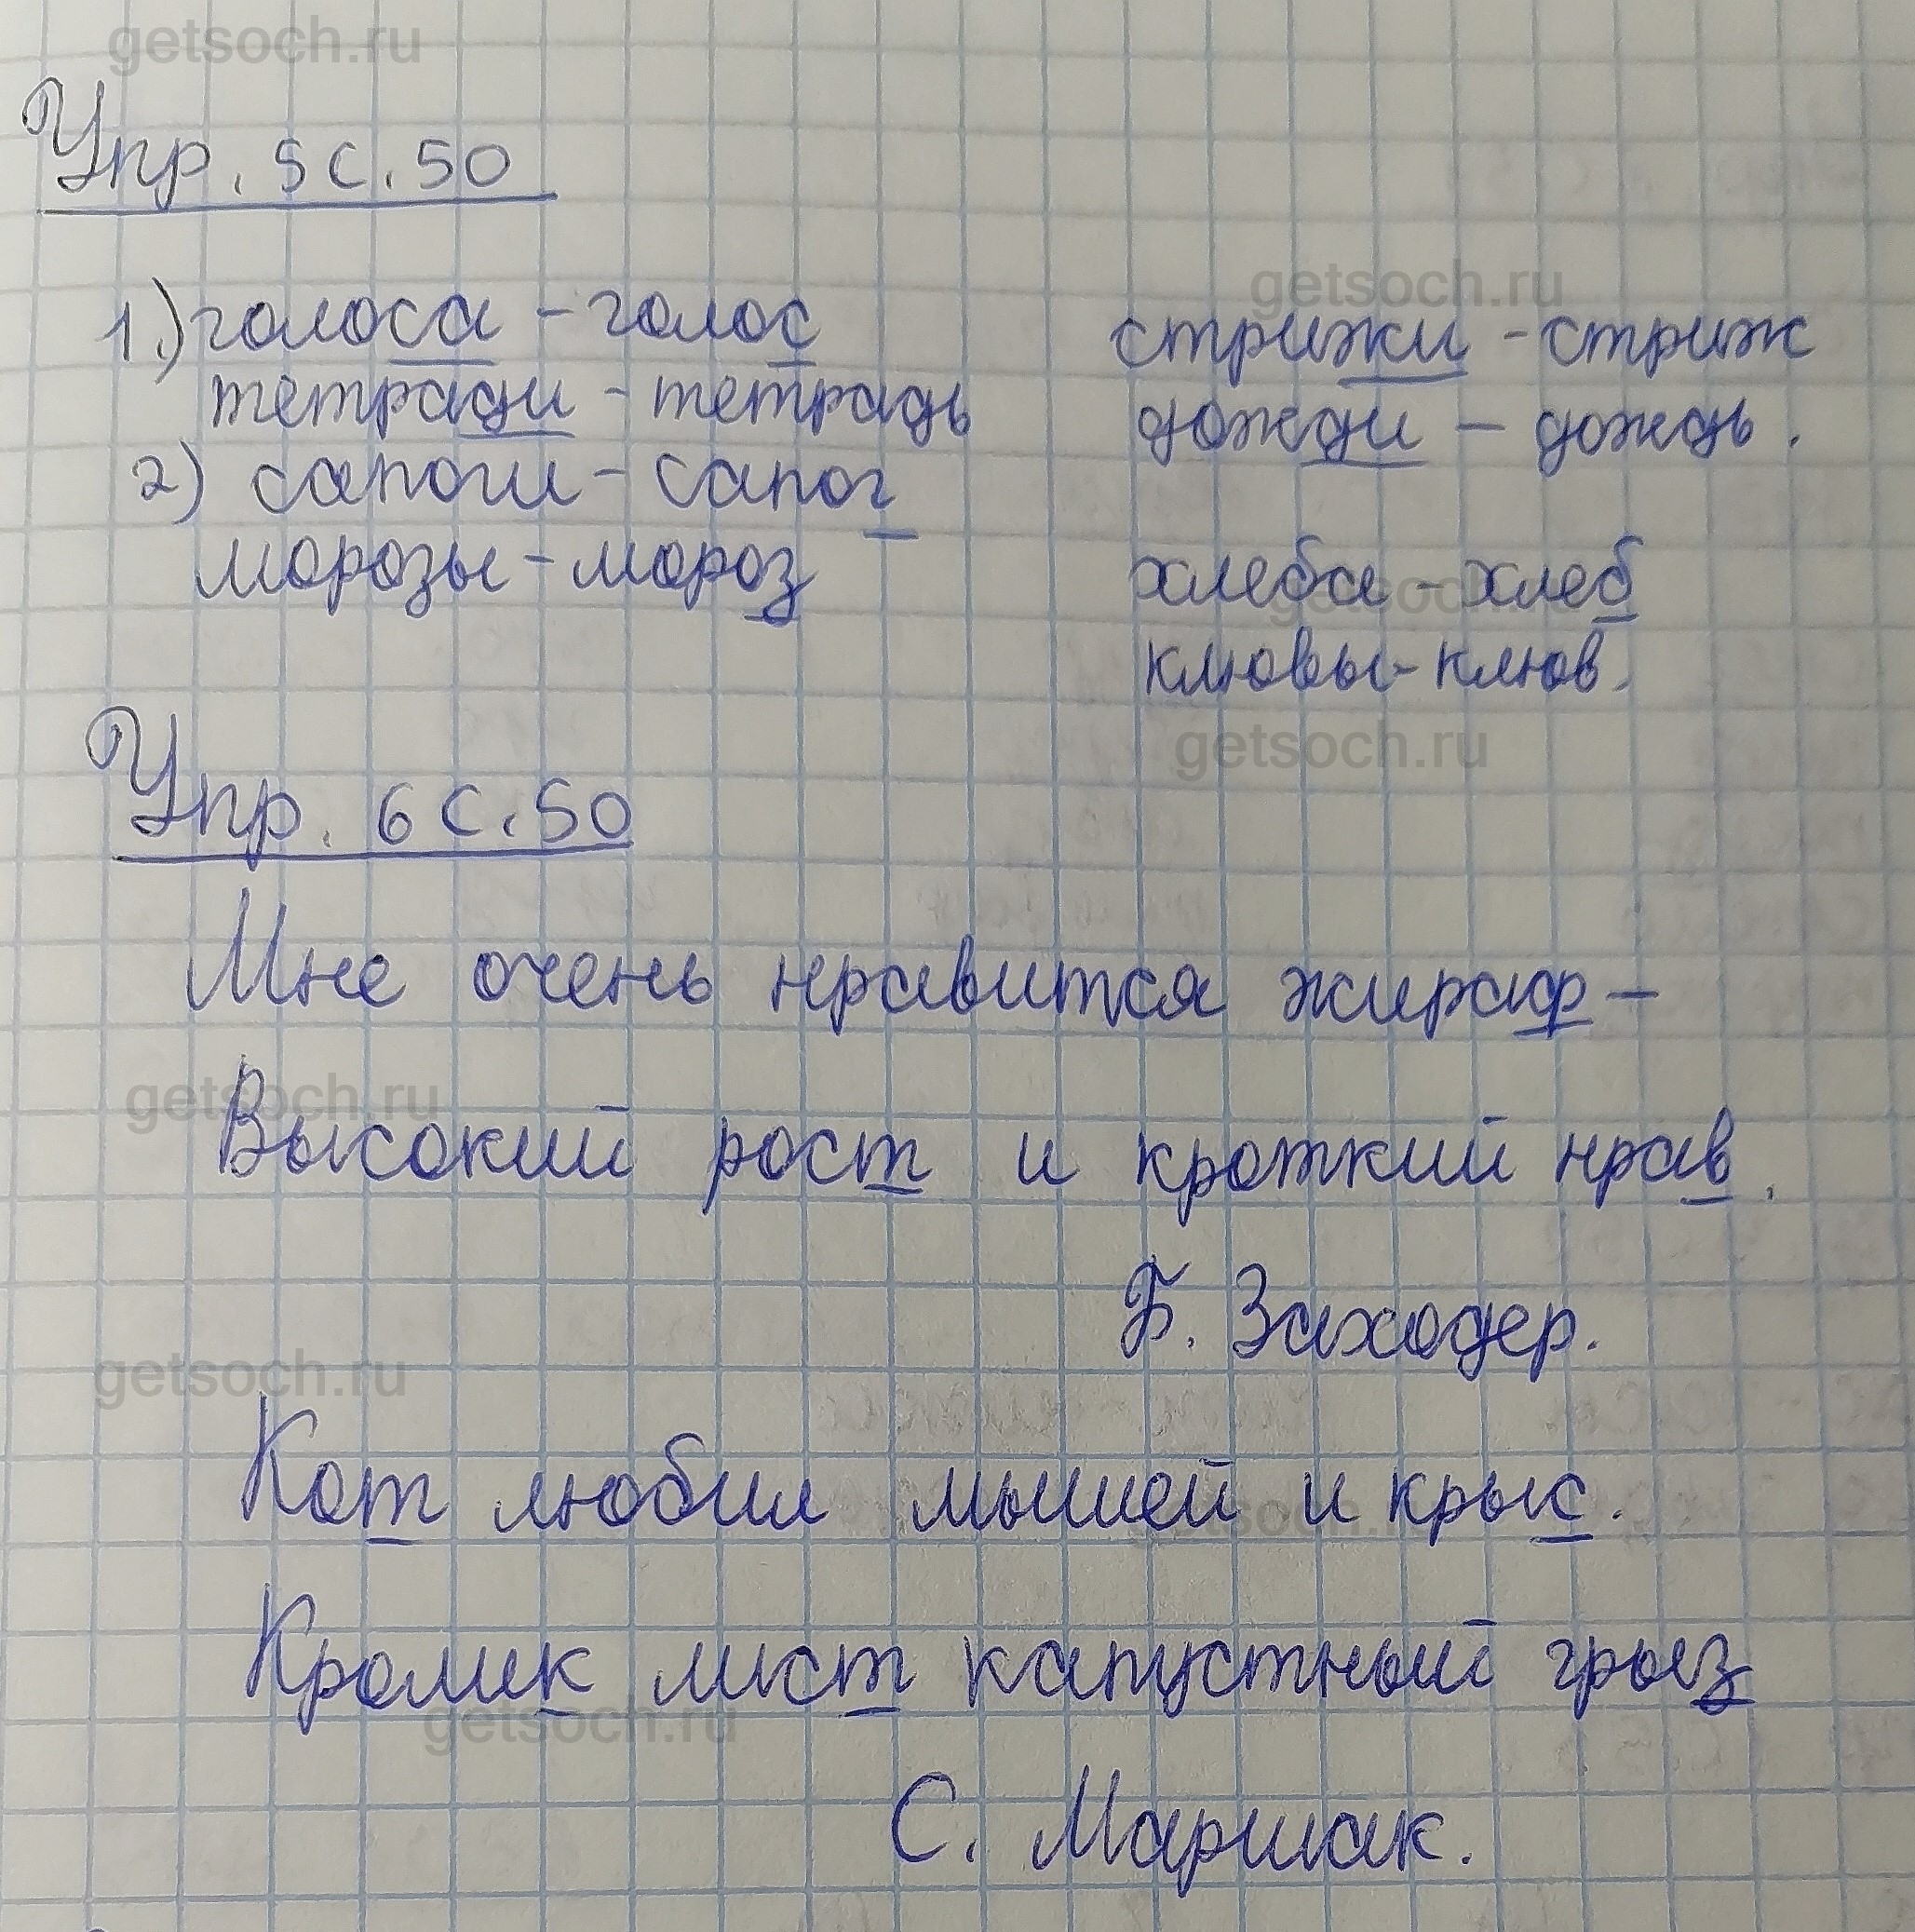 getsoch.ru
Упр. 5 с. 50
getsoch.ru
1.) голоса - голос стрижи - стриж
тетради - тетрадь дожди - дождь.
2) сапоги - сапог
морозы - мороз хлеба - хлеб
getsoch.ru
клювы - клюв.
getsoch.ru
Упр. 6 с. 50
Мне очень нравится жираф -
getsoch.ru
Высокий рост и кроткий нрав.
Б. Заходер.
getsoch.ru
Кот любил мышей и крыс.
getsoch.ru
Кролик лист капустный грыз
getsoch.ru
С. Маршак.